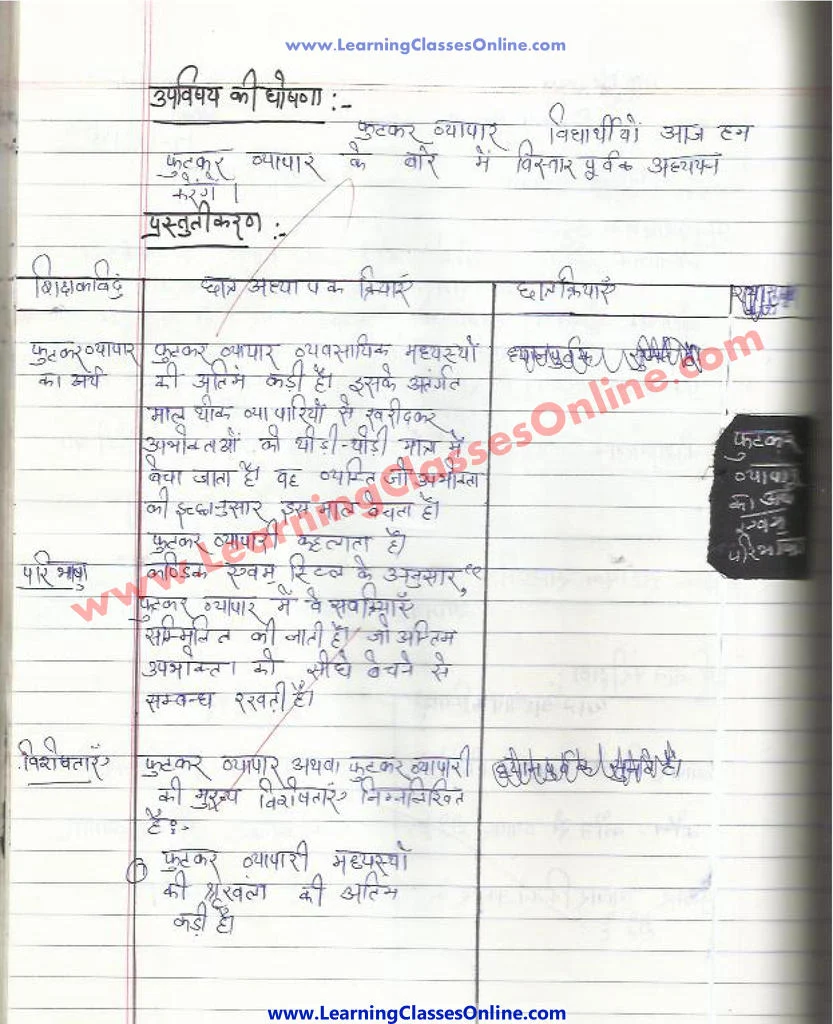 www.LearningClassesOnline.com
उपविषय की घोषणा :-
फुटकर व्यापार विद्यार्थीयों आज हम
फुटकर व्यापार के बारे में विस्तार पूर्वक अध्ययन
करेंगे ।
प्रस्तुतीकरण :-
शिक्षकविंदु छात्र अध्यापक क्रियाएँ छात्रक्रियाएँ
फुटकर व्यापार फुटकर व्यापार व्यवसायिक मध्यस्थों ध्यानपूर्वक
का अर्थ की अंतिम कड़ी है। इसके अंतर्गत
माल थोक व्यापारियों से खरीदकर
उपभोक्ताओं को थोड़ी-थोड़ी मात्रा में
बेचा जाता है। वह व्यक्ति जो उपभोक्ता
की इच्छानुसार इस माल बेचता है।
फुटकर व्यापारी कहलाता है।
परिभाषा एवम् के अनुसार, "
फुटकर व्यापार में वे सब क्रियाएँ
सम्मिलित की जाती है। जो अन्तिम
उपभोक्ता को सीधे बेचने से
सम्बन्ध रखती है।
फुटकर
व्यापार
का अर्थ
एवम्
परिभाषा
विशेषताएँ फुटकर व्यापार अथवा फुटकर व्यापारी
की मुख्य विशेषताएँ निम्नलिखित
है :-
① फुटकर व्यापारी मध्यस्थों
की श्रृंखला की अंतिम
कड़ी है।
www.LearningClassesOnline.com
www.LearningClassesOnline.com